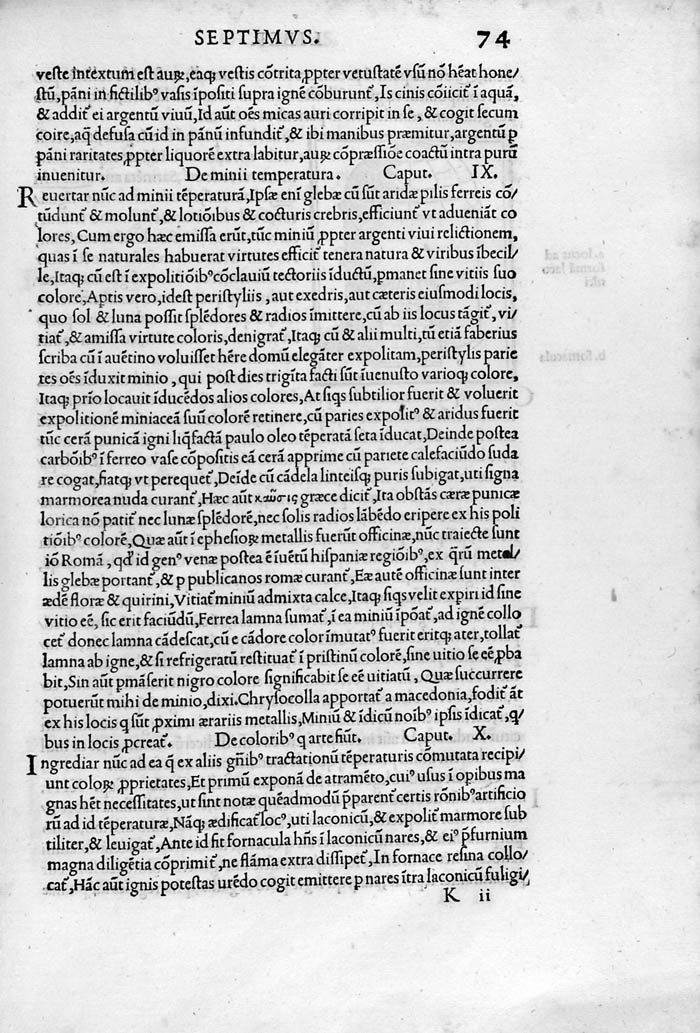 SEPTIMVS. 74
veste intextum est auꝝ, eaqꝫ vestis cõtrita, ꝓpter vetustatẽ vsũ nõ hẽat hone/
stũ, pãni in fictilibꝰ vasis ĩpositi supra ignẽ cõburunt̃, Is cinis cõiicit̃ ĩ aquã,
& addit̃ ei argentũ viuũ, Id aũt oẽs micas auri corripit in se, & cogit secum
coire, aq̃ defusa cũ id in pãnũ infundit̃, & ibi manibus præmitur, argentũ ꝑ
pãni raritates, ꝓpter liquorẽ extra labitur, auꝝ cõpræssiõe coactũ intra purũ
inuenitur. De minii temperatura. Caput. IX.
Reuertar nũc ad minii tẽperaturã, Ipsæ enĩ glebæ cũ sũt aridæ pilis ferreis cõ/
tũdunt̃ & molunt̃, & lotiõibus & cocturis crebris, efficiunt̃ vt adueniãt co
lores, Cum ergo hæc emissa erũt, tũc miniũ, ꝓpter argenti viui relictionem,
quas ĩ se naturales habuerat virtutes efficit̃ tenera natura & viribus ĩbecil/
le, Itaqꝫ cũ est ĩ expolitiõibꝰ cõclauiũ tectoriis ĩductũ, ꝑmanet sine vitiis suo
colore, Aptis vero, idest peristyliis, aut exedris, aut cæteris eiusmodi locis,
quo sol & luna possit splẽdores & radios ĩmittere, cũ ab iis locus tãgit̃, vi/
tiat̃, & amissa virtute coloris, denigrat̃, Itaqꝫ cũ & alii multi, tũ etiã faberius
scriba cũ ĩ auẽtino voluisset hẽre domũ elegãter expolitam, peristylis parie
tes oẽs ĩduxit minio, qui post dies trigĩta facti sũt ĩuenusto varioqꝫ colore,
Itaqꝫ prĩo locauit ĩducẽdos alios colores, At siqs subtilior fuerit & voluerit
expolitionẽ miniaceã suũ colorẽ retinere, cũ paries expolitꝰ & aridus fuerit
tũc cerã punicã igni liq̃factã paulo oleo tẽperatã seta ĩducat, Deinde postea
carbõibꝰ ĩ ferreo vase cõpositis eã cerã apprime cũ pariete calefaciũdo suda
re cogat, fiatqꝫ vt perequet̃, Deĩde cũ cãdela linteisqꝫ puris subigat, uti signa
marmorea nuda curant̃, Hæc aũt καῦσις græce dicit̃, Ita obstãs cæræ punicæ
lorica nõ patit̃ nec lunæ splẽdorẽ, nec solis radios lãbẽdo eripere ex his poli
tiõibꝰ colorẽ, Quæ aũt ĩ ephesioꝝ metallis fuerũt officinæ, nũc traiecte sunt
iõ Romã, qđ id genꝰ venæ postea ẽ ĩuẽtũ hispaniæ regiõibꝰ, ex q̃rũ metal/
lis glebæ portant̃, & ꝑ publicanos romæ curant̃, Eæ autẽ officinæ sunt inter
ædẽ floræ & quirini, Vitiat̃ miniũ admixta calce, Itaqꝫ siqs velit expĩri id sine
vitio eẽ, sic erit faciũdũ, Ferrea lamna sumat̃, ĩ ea miniũ ĩpõat̃, ad ignẽ collo
cet̃ donec lamna cãdescat, cũ e cãdore color ĩmutatꝰ fuerit eritqꝫ ater, tollat̃
lamna ab igne, & si refrigeratũ restituat̃ ĩ pristinũ colorẽ, sine uitio se eẽ, ꝓba
bit, Sin aũt ꝑmãserit nigro colore significabit se eẽ uitiatũ, Quæ succurrere
potuerũt mihi de minio, dixi. Chrysocolla apportat̃ a macedonia, fodit̃ ãt
ex his locis q sũt ꝓximi ærariis metallis, Miniũ & ĩdicũ noĩbꝰ ipsis ĩdicat̃, q/
bus in locis ꝓcreat̃. De coloribꝰ q arte fiũt. Caput. X.
Ingrediar nũc ad ea q̃ ex aliis gñibꝰ tractationũ tẽperaturis cõmutata recipi/
unt coloꝝ ꝓprietates, Et primũ exponã de atramẽto, cuiꝰ usus ĩ opibus ma
gnas hẽt necessitates, ut sint notæ quẽadmodũ p̃parent̃ certis rõnibꝰ artificio
rũ ad id tẽperaturæ, Nãqꝫ ædificat̃ locꝰ, uti laconicũ, & expolit̃ marmore sub
tiliter, & leuigat̃, Ante id fit fornacula hñs ĩ laconicũ nares, & eiꝰ p̃furnium
magna diligẽtia cõprimit̃, ne flãma extra dissipet̃, In fornace resina collo/
cat̃, Hãc aũt ignis potestas urẽdo cogit emittere ꝑ nares ĩtra laconicũ fuligi/
K ii